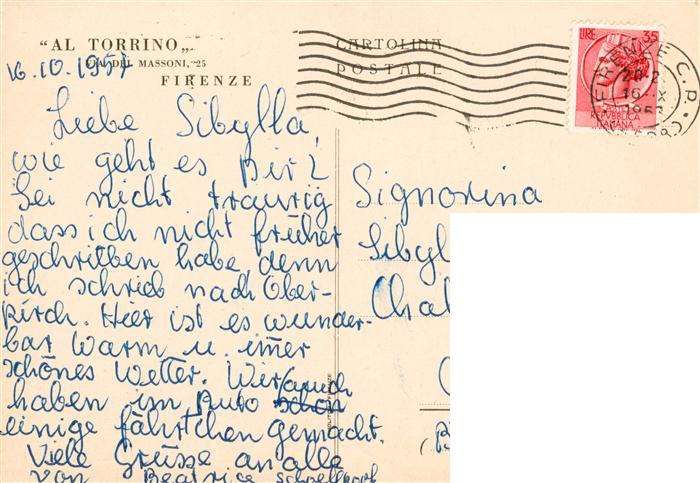 "AL TORRINO„
VIA DEI MASSONI, 25
FIRENZE
CARTOLINA
POSTALE
LIRE 35
REPUBBLICA
ITALIANA
FIRENZE C.P.
16 X
16.10.1957
Liebe Sibylla,
wie geht es Dir?
Sei nicht traurig
dass ich nicht früher
geschriben habe, denn
ich schrieb nach Ober-
kirch. Hier ist es wunder-
bar warm u. imer
schönes Wetter. Wir auch
haben im Auto schon
einige fährtchen gemacht.
Viele Grüsse an alle
von Beatrice
Signorina
Sibyl
Chal